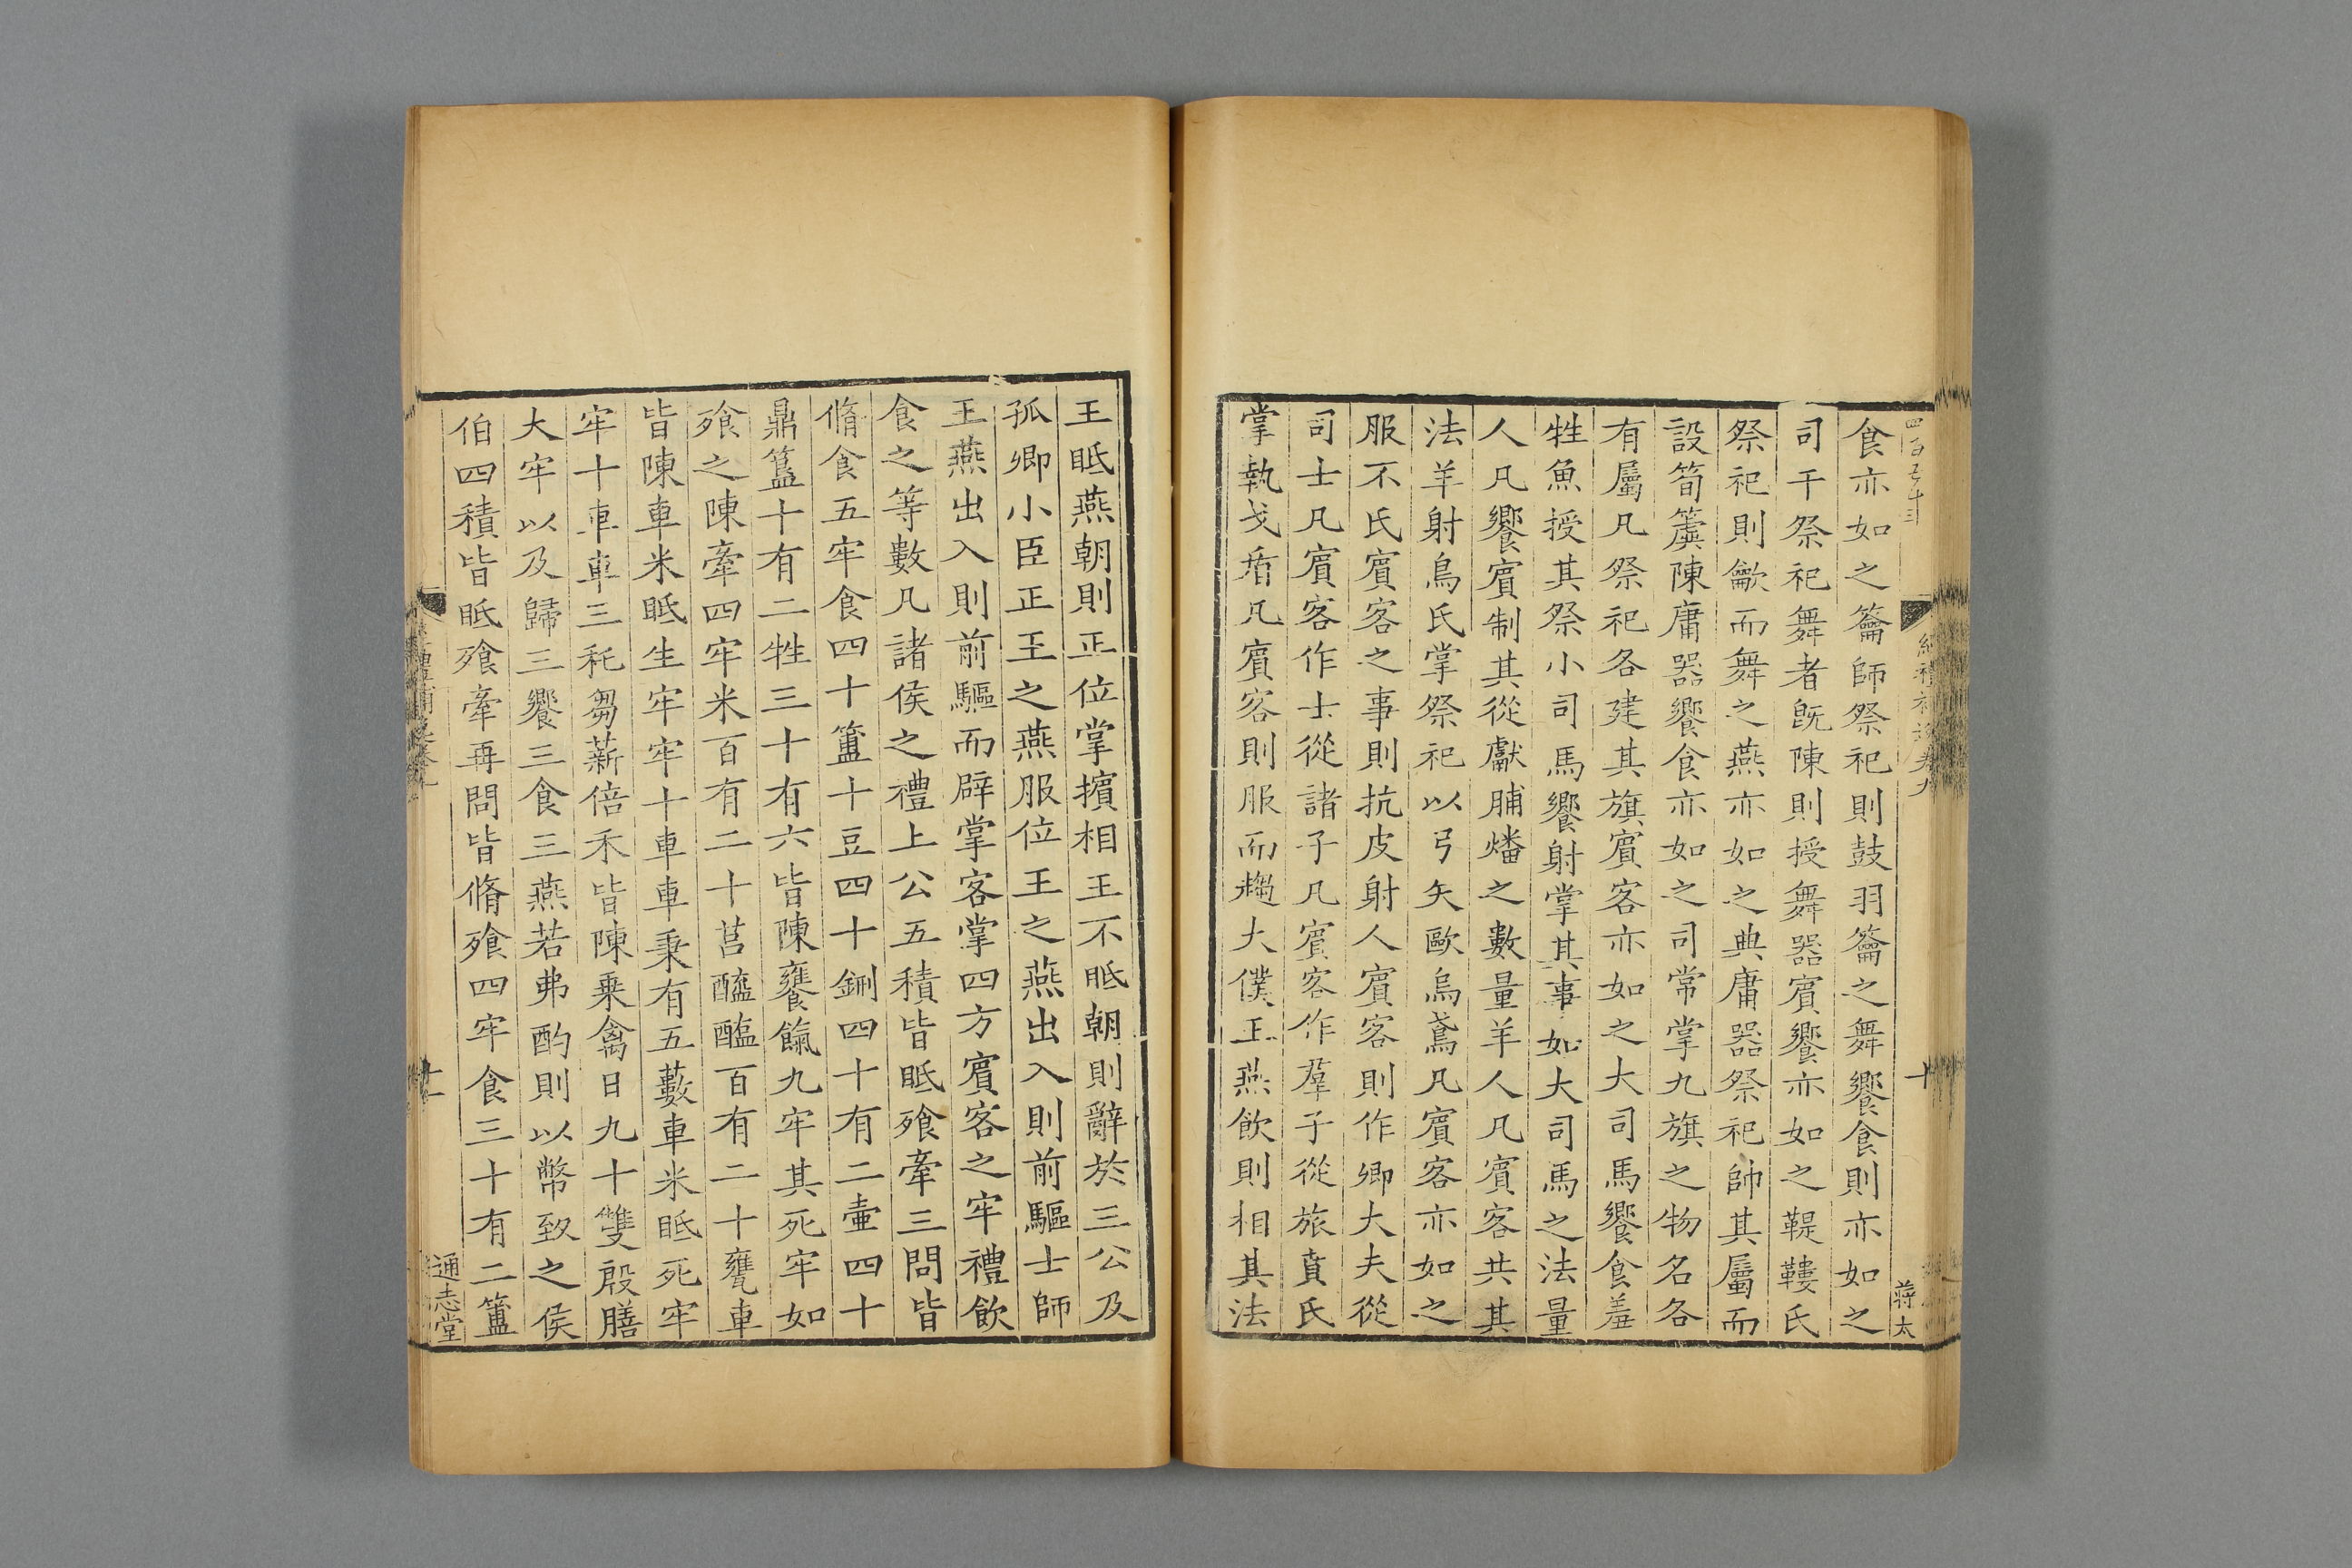 四百五十三
經禮補逸卷九
十
蔣太
食亦如之籥師祭祀則鼓羽籥之舞饗食則亦如之
司干祭祀舞者旣陳則授舞器賓饗亦如之鞮鞻氏
祭祀則龡而舞之燕亦如之典庸器祭祀帥其屬而
設筍簴陳庸器饗食亦如之司常掌九旗之物名各
有屬凡祭祀各建其旗賓客亦如之大司馬饗食羞
牲魚授其祭小司馬饗射掌其事如大司馬之法量
人凡饗賓制其從獻脯燔之數量羊人凡賓客共其
法羊射鳥氏掌祭祀以弓矢歐烏鳶凡賓客亦如之
服不氏賓客之事則抗皮射人賓客則作卿大夫從
司士凡賓客作士從諸子凡賓客作羣子從旅賁氏
掌執戈盾凡賓客則服而趨大僕王燕飲則相其法
王眡燕朝則正位掌擯相王不眡朝則辭於三公及
孤卿小臣正王之燕服位王之燕出入則前驅士師
王燕出入則前驅而辟掌客掌四方賓客之牢禮飲
食之等數凡諸侯之禮上公五積皆眡飱牽三問皆
脩食五牢食四十簠十豆四十鉶四十有二壷四十
鼎簋十有二牲三十有六皆陳饔餼九牢其死牢如
飱之陳牽四牢米百有二十筥醯醢百有二十罋車
皆陳車米眡生牢牢十車車秉有五藪車米眡死牢
牢十車車三秅芻薪倍禾皆陳乗禽日九十雙殷膳
大牢以及歸三饗三食三燕若弗酌則以幣致之侯
伯四積皆眡飱牽再問皆脩飱四牢食三十有二簠
十一
通志堂